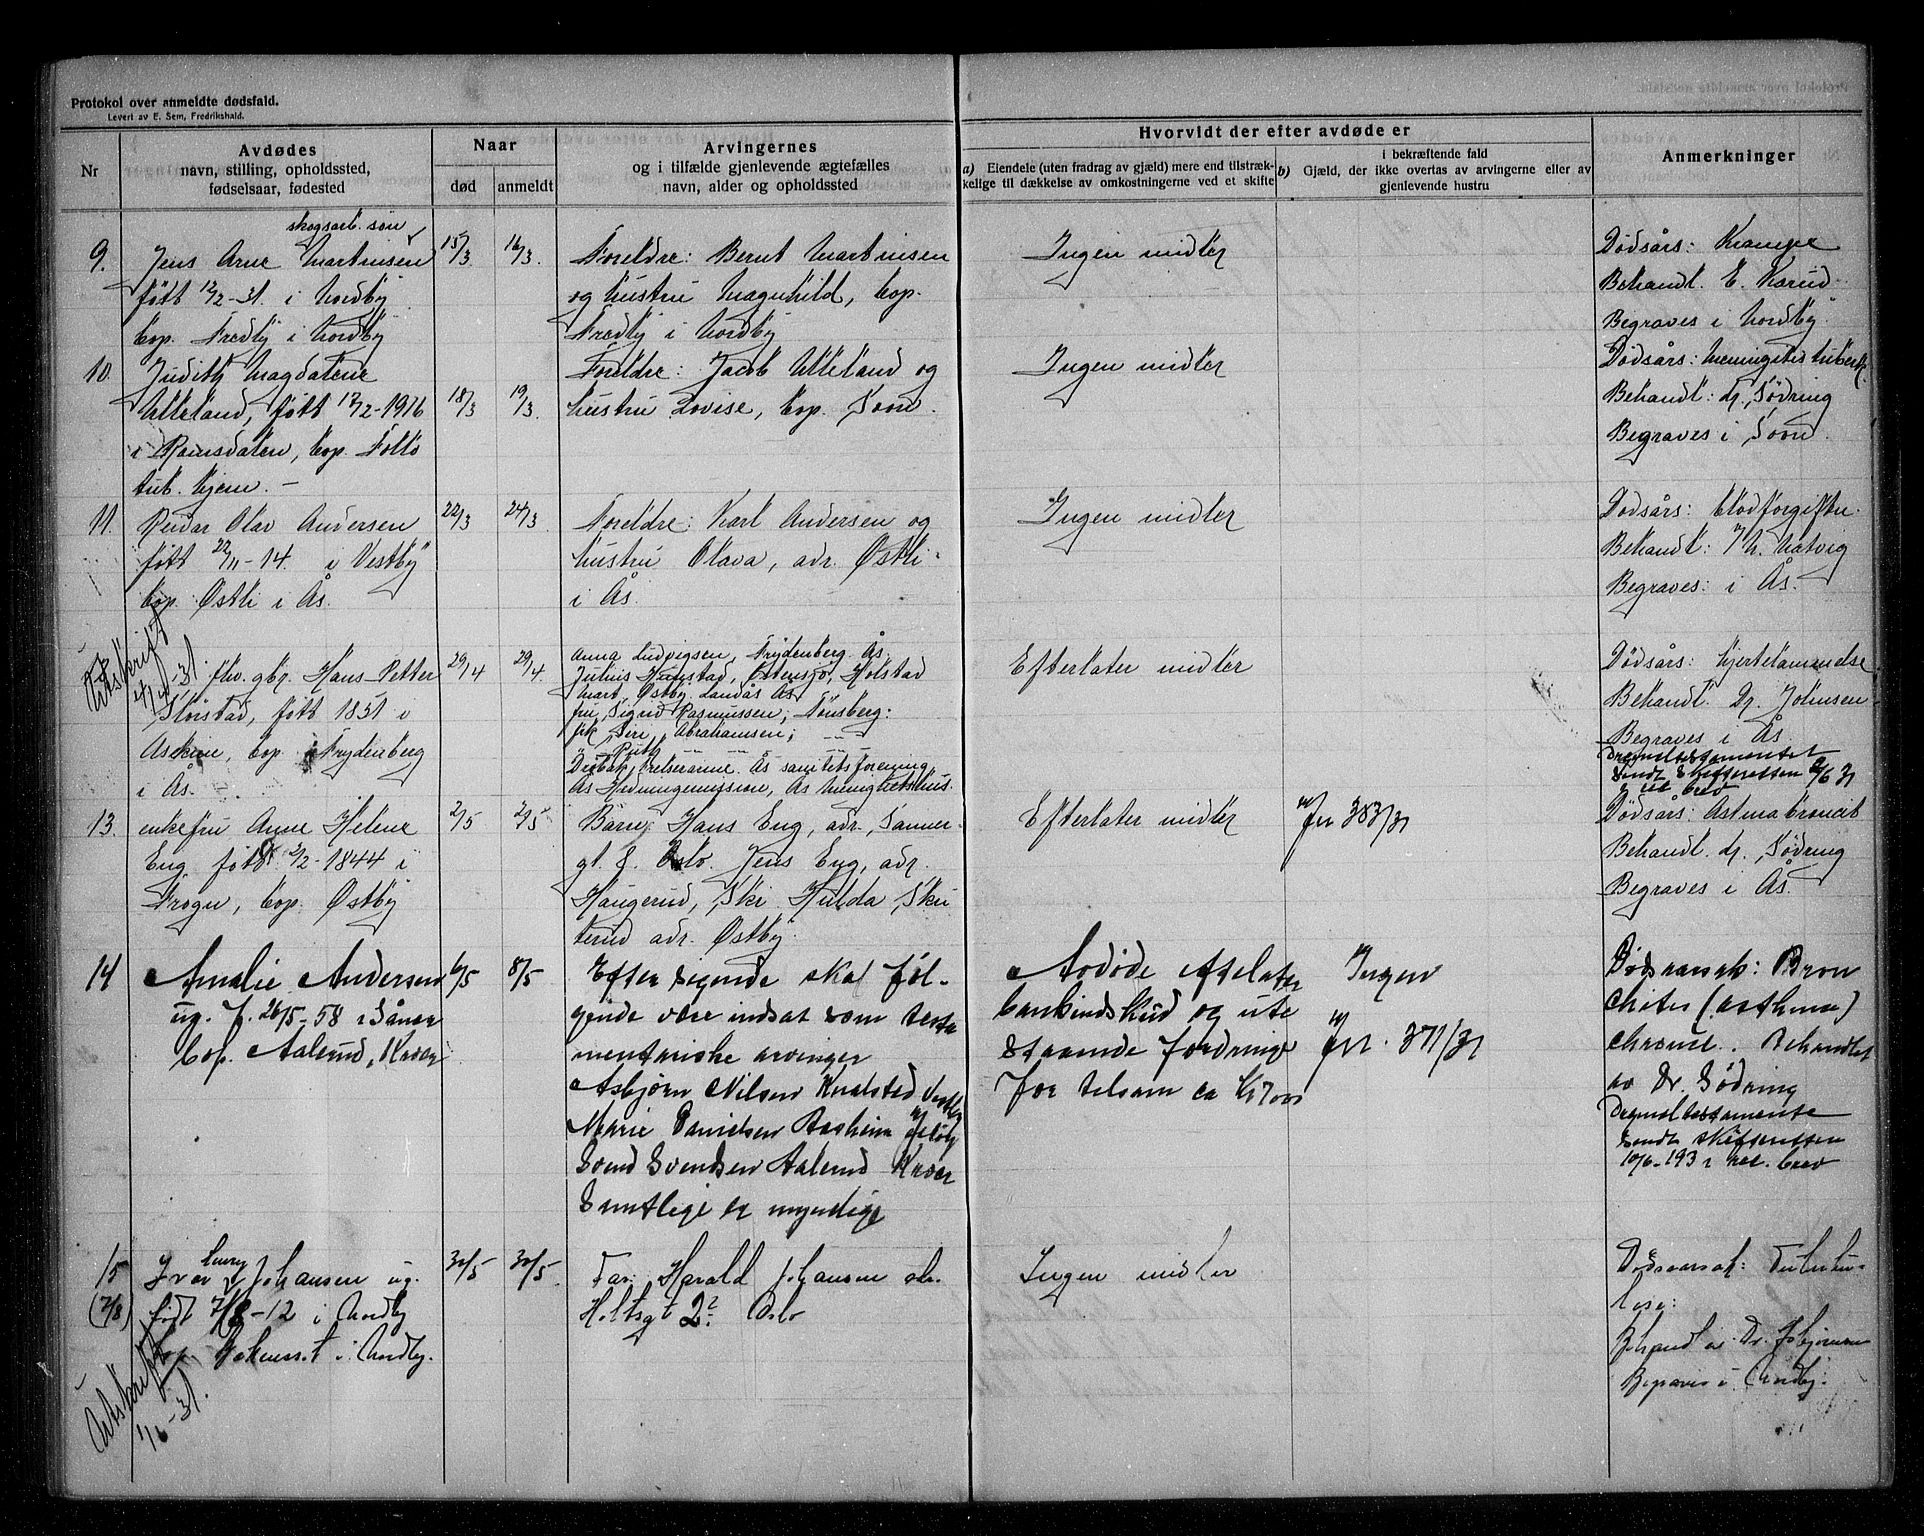 Protokol over anmeldte dødsfald.
Levert av E. Sem, Fredrikshald.
Nr
Avdødes
navn, stilling, opholdssted,
fødselsaar, fødested
Naar
død
anmeldt
Arvingernes
og i tilfælde gjenlevende ægtefælles
navn, alder og opholdssted
Hvorvidt der efter avdøde er
a) Eiendele (uten fradrag av gjæld) mere end tilstræk-
kelige til dækkelse av omkostningerne ved et skifte
i bekræftende fald
b) Gjæld, der ikke overtas av arvingerne eller av
gjenlevende hustru
Anmerkninger
9.
skogsarb. søn
Jens Arne Martinsen
født 12/2-31. i Nordby
bop. Fredly i Nordby
15/3
16/3.
Foreldre: Bernt Martinsen
og hustru Magnhild, bop.
Fredly i Nordby
Ingen midler
Dødsårs: Krampe
Behandl. E. Karud
Begraves i Nordby
10.
Judith Magdalene
Ulleland, født 17/2-1916
i Romsdalen, bop. Follo
tub. hjem. -
18/3
19/3.
Foreldre: Jacob Ulleland og
hustru Lovise, bop. Soon.
Ingen midler
Dødsårs: meningitis tuberk.
Behandl: dr. Sødring
Begraves i Soon.
11.
Reidar Olav Andersen
født 22/11-14. i Vestby
bop. Østli i Ås.
22/3
24/3
Foreldre: Karl Andersen og
hustru Olava, adr. Østli
i Ås.
Ingen midler
Dødsårs: blodforgiftn.
Behandl: Th. Natvig
Begraves: i Ås.
Utskrift
4/14-31.
fhv. gbr. Hans Petter
Storstad, født 1851 i
Askim, bop. Frydenberg
i Ås.
29/4
29/4.
Anna Ludvigsen, Frydenberg Ås.
Julius Hunstad, Østensjø, Holstad
Mart. Østby. Landås Ås
fru Sigrid Rasmussen, Tønsberg:
frk Siri Abrahamsen,
" Ruth
Drøbak frelserarme. Ås sanitetsforening
Ås Hedningemission, Ås Menighetshus.
Efterlater midler
Dødsårs: hjertelammelse
Behandl. Dr. Johnsen
Begraves i Ås
Orginaltestamentet
sendt Skifteretten 2/6 31
i rek. brev
13.
enkefru Anne Helene
Eng født 2/2-1844 i
Frogn, bop. Østby
2/5
2/5
Barn: Hans Eng, adr. Sanner-
gt. 8. Oslo. Jens Eng, adr.
Haugerud, Ski Hulda Sku
terud adr. Østby.
Efterlater midler
Jnr 383/31
Dødsårs: Astma broncit
Behandl. dr. Sødring
Begraves i Ås.
14
Amalie Andersen
ug. f. 26/5-58 i Såner
bop. Aalerud, Kroer
6/5
8/5
Efter sigende skal føl-
gende være indsat som testa
mentariske arvinger
Asbjørn Nilsen Knalstad Vestby
Marie Danielsen Aasheim Jeløy
Svend Svendsen Aalerud Kroer
Samtlige er myndige
Avdøde efterlater
bankindskud og ute
staaende fordringer
for tilsam ca Kr 7000
Ingen
Jnr. 371/31
Dødsaarsak: Bron
chites (asthma)
chronic. Behandlet
av Dr. Sødring
Orginaltestamente
sendt skifteretten
10/6-1931 rek. brev
15
(7/8)
Henry
Ivar Johansen ug.
født 7/8-12 i Nordby
bop. i Nordby.
Utskrift
1/6-31.
30/5
30/5.
Far: Harald Johansen adr.
Holtsgt 2² Oslo
Ingen midler
Dødsaarsak: Tuberku-
lose:
Behandl av Dr.
Begraves i Nordby.